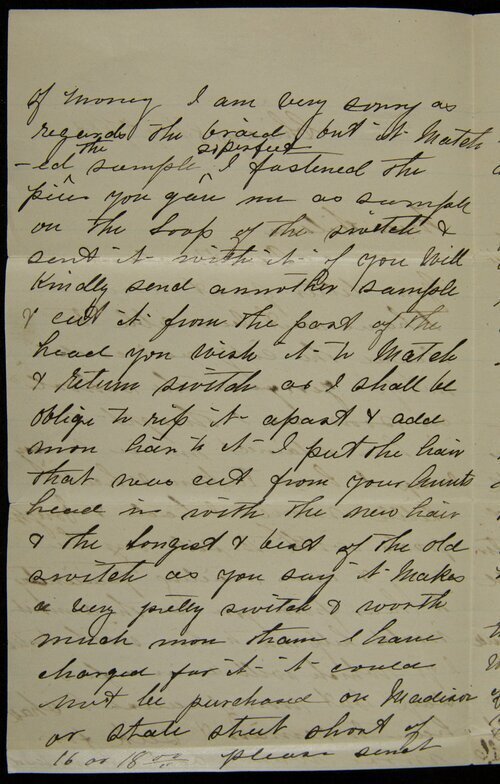 of money I am very sorry as
regards the braid but it Match
-ed the sample so perfect I fastened the
piece you gave me as sample
on the Loop of the switch &
sent it with it if you Will
Kindly send annother sample
& cut it from the part of the
head you wish it to Match
& return switch as I shall be
oblige to rip it apart & add
mor hair to it I put the hair
that was cut from your Aunts
head in with the new hair
& the Longest & best of the old
switch as you say it Makes
a very pretty switch & worth
much more than I have
charged for it it could
not be purchased on Madison
or State street short of
16 or 18 00 please send